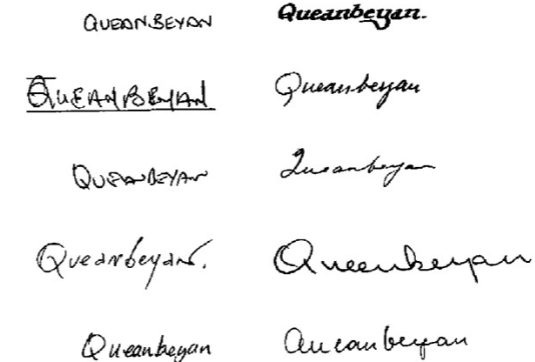 QUEANBEYAN Queanbeyan.
QUEANBEYAN Queanbeyan
QUEANBEYAN Queanbeyan
Queanbeyan. Queenbeyan
Queanbeyan Queanbeyan